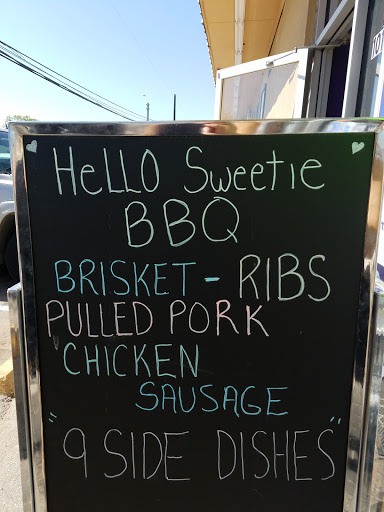 HeLLO Sweetie
BBQ
BRISKET - RIBS
PULLED PORK
CHICKEN
SAUSAGE
"9 SIDE DISHES"